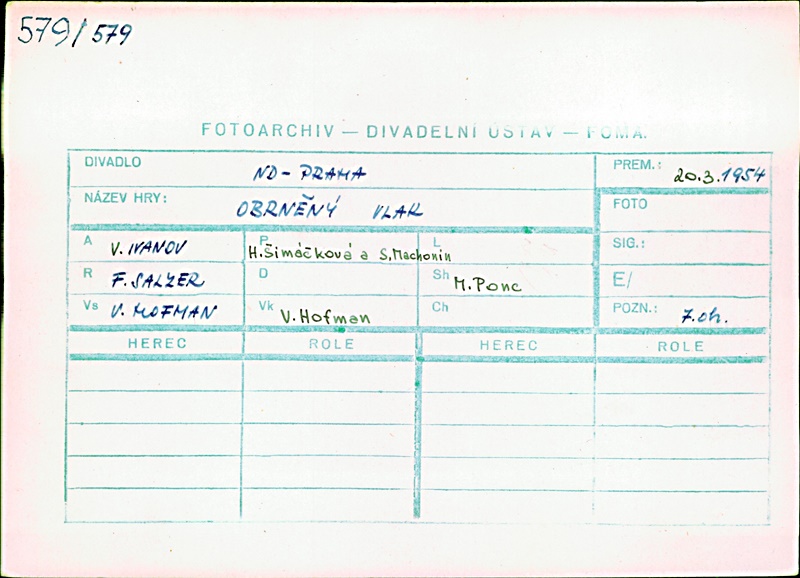 579/579
FOTOARCHIV — DIVADELNÍ ÚSTAV — FOMA.
DIVADLO ND - PRAHA PREM.: 20.3.1954
NÁZEV HRY: OBRNĚNÝ VLAK FOTO
A V. IVANOV P H. Šimáčková a S. Machonin L SIG.:
R F. SALZER D Sh M. Ponc E/
Vs V. HOFMAN Vk V. Hofman Ch POZN.: 7. ch.
HEREC ROLE HEREC ROLE